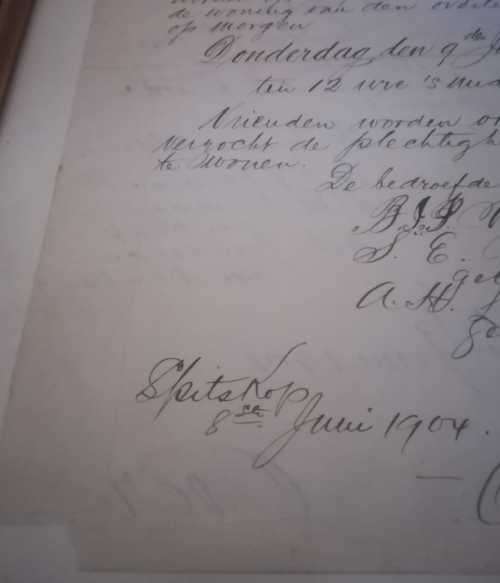 de woning van den overle
op morgen
Donderdag den 9de Ju
ten 12 ure 's mid
Vrienden worden
verzocht de plechtigh
te wonen.
De bedroefde
B.J.S.
S. E.
A. H.
Spitskop
8ste Juni 1904.